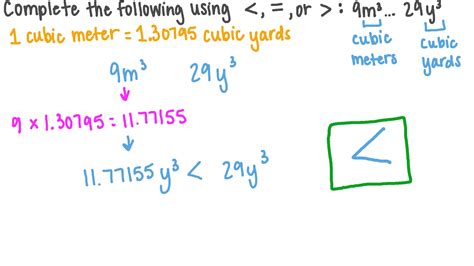 Complete the following using <, =, or > : 9m³... 29y³
1 cubic meter = 1.30795 cubic yards
cubic meters
cubic yards
9m³ 29y³
9 x 1.30795 = 11.77155
11.77155y³ < 29y³
<